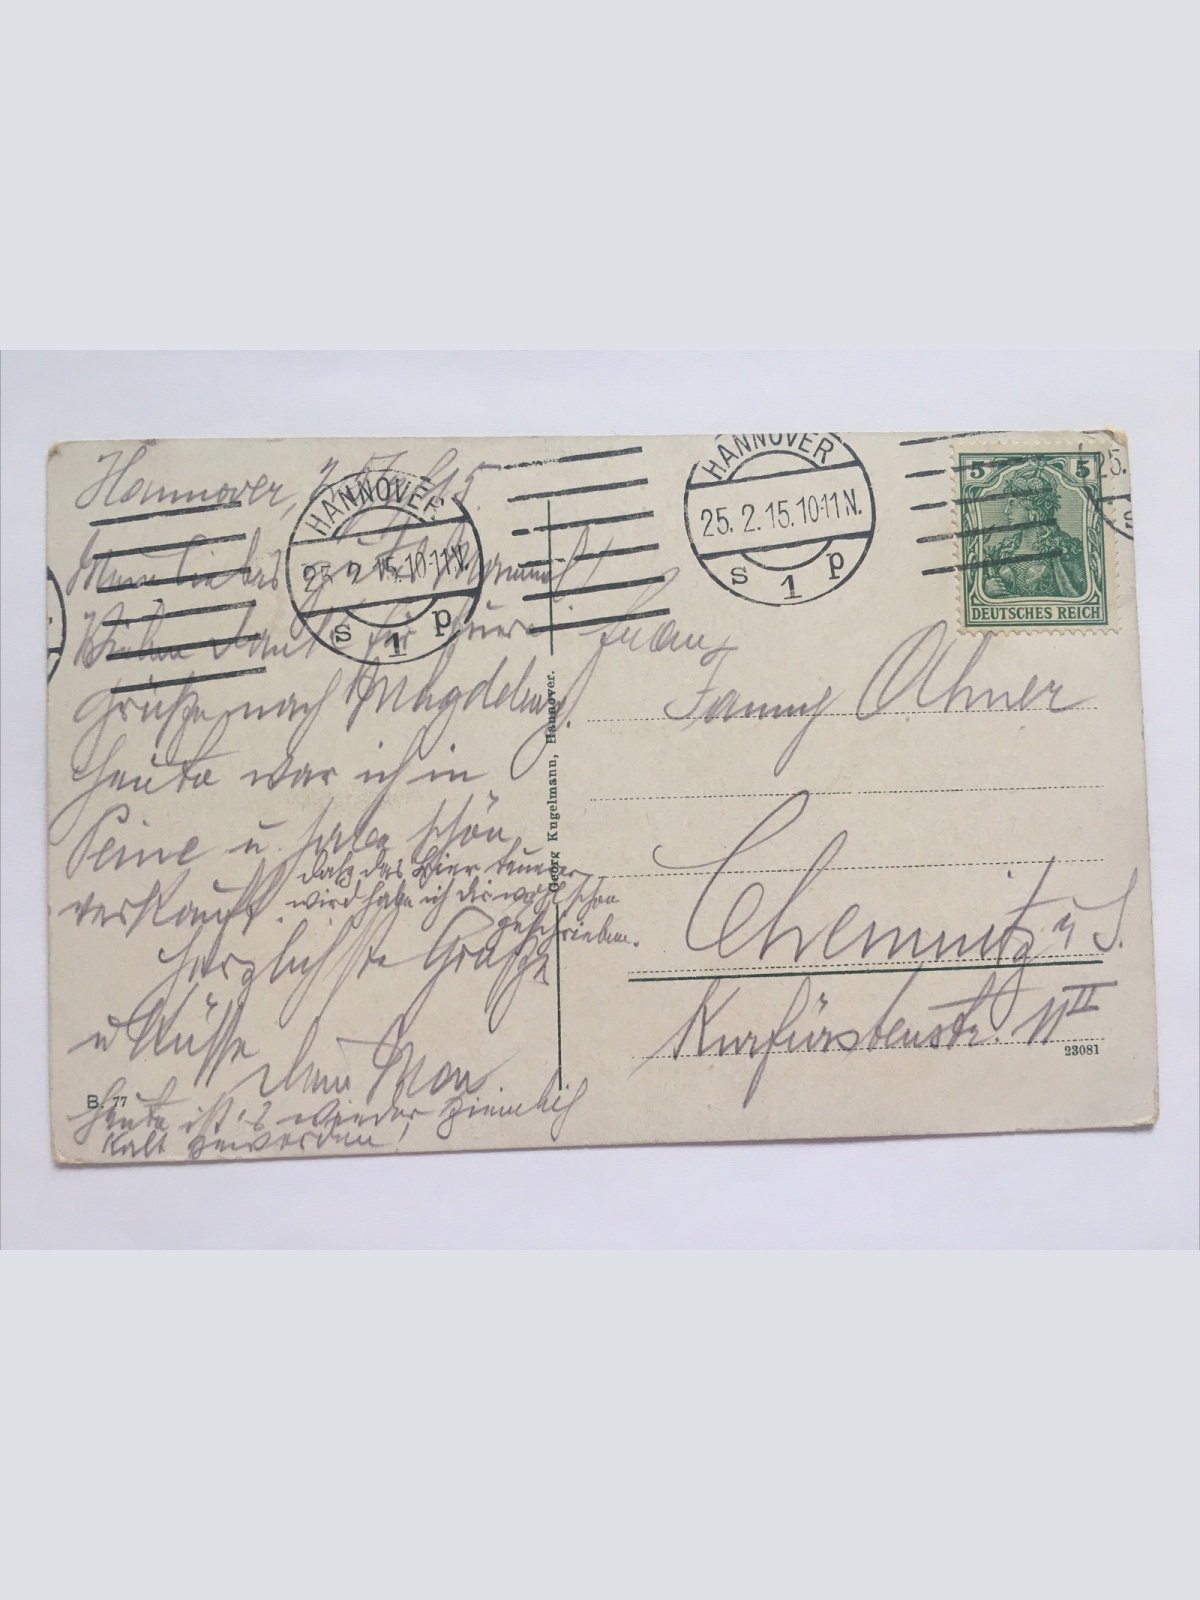 Hannover, 25. 2. 15
Mein liebes gutes Mammel!
Vielen Dank für Eure
Grüße nach Magdeburg.
Heute war ich in
Peine u. habe schön
verkauft.
daß das Bier teuerer
wird habe ich dir wohl schon
geschrieben.
Herzlichste Grüße
u Küsse
Dein Man
Heute ist's wieder ziemlich
kalt geworden!
B. 77
HANNOVER
25. 2. 15. 10-11 N.
s 1 p
Georg Kugelmann, Hannover.
HANNOVER
25. 2. 15. 10-11 N.
s 1 p
25.
5 5
DEUTSCHES REICH
Frau
Fanny Ahner
Chemnitz i S.
Kurfürstenstr. 11 II
23081